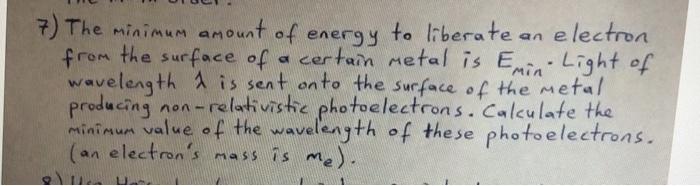 7) The minimum amount of energy to liberate an electron
from the surface of a certain metal is Emin. Light of
wavelength λ is sent onto the surface of the metal
producing non-relativistic photoelectrons. Calculate the
minimum value of the wavelength of these photoelectrons.
(an electron's mass is me).